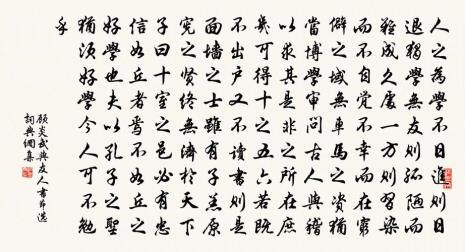 人之為學不日進則日
退獨學無友則孤陋而
難成久處一方則習染
而不自覺不幸而在窮
僻之域無車馬之資猶
當博學審問古人與稽
以求其是非之所在庶
幾可得十之五六若既
不出户又不讀書則是
面墻之士雖有子羔原
憲之賢終無濟於天下
子曰十室之邑必有忠
信如丘者焉不如丘之
好學也夫以孔子之聖
猶須好學今人可不勉
乎
顧炎武與友人書節選
詞典網集